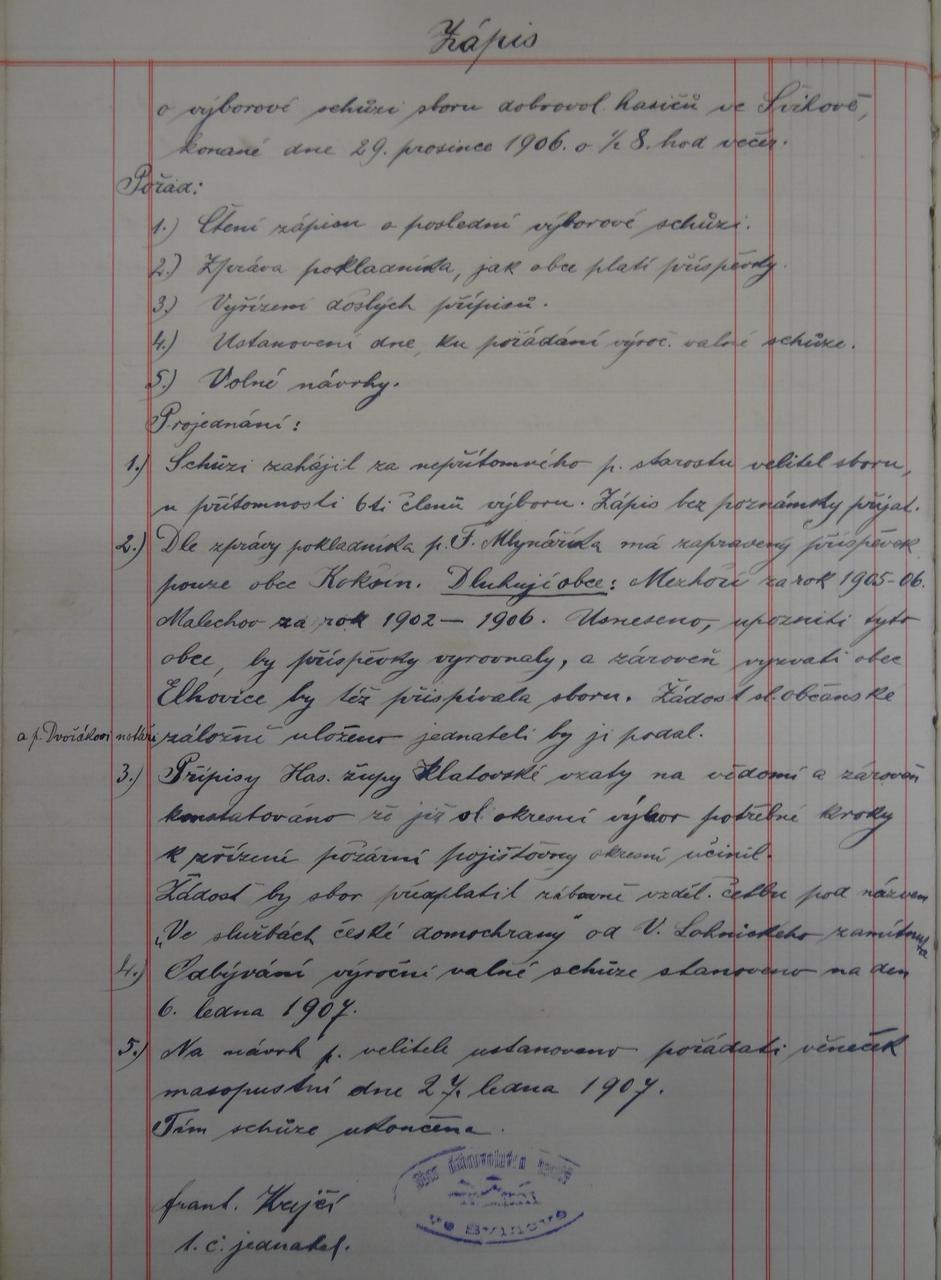 Zápis
o výborové schůzi sboru dobrovol. hasičů ve Švihově,
konané dne 29. prosince 1906. o ½ 8. hod večer.
Pořad:
1.) Čtení zápisu o poslední výborové schůzi.
2.) Zpráva pokladníka, jak obce platí příspěvky.
3.) Vyřízení došlých přípisů.
4.) Ustanovení dne, ku pořádání výroč. valné schůze.
5.) Volné návrhy.
Projednání:
1.) Schůzi zahájil za nepřítomného p. starostu velitel sboru,
u přítomnosti 6ti členů výboru. Zápis bez poznámky přijat.
2.) Dle zprávy pokladníka p. F. Mlynáříka má zapravený příspěvek
pouze obec Kokšín. Dluhují obce: Mezhoří za rok 1905-06.
Malechov za rok 1902 – 1906. Usneseno, upozniti tyto
obce, by příspěvky vyrovnaly, a zároveň vyzvati obec
Elhovice by též přispívala sboru. Žádost sl. občanské
a p. Dvořákovi notáři záložně uloženo jednateli by ji podal.
3.) Přípisy Has. župy Klatovské vzaty na vědomí a zároveň
konstatováno že již sl. okresní výbor potřebné kroky
k zřízení požární pojišťovny okresní učinil.
Žádost by sbor předplatil zábavně vzděl. četbu pod názvem
„Ve službách české domochrany" od V. Lohnického zamítnuta
4.) Odbývání výroční valné schůze stanoveno na den
6. ledna 1907.
5.) Na návrh p. velitele ustanoveno pořádati věneček
masopustní dne 27. ledna 1907.
Tím schůze ukončena.
Sbor dobrovolných hasičů
ve
Frant. Krejčí
t. č. jednatel.